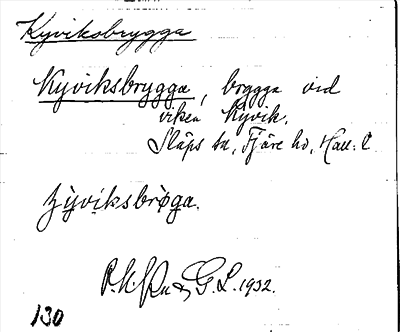 Kyviksbrygga
Kyviksbrygga, brygga vid
viken Kyvik,
Släps sn, Fjäre hd, Hall. l
G. L. 1932.
130